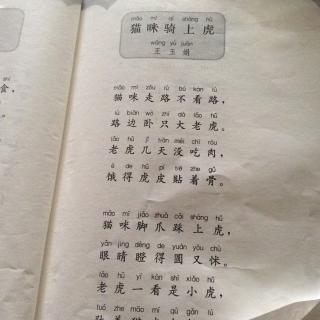 māo mī qí shàng hǔ
猫咪骑上虎
wáng yù juān
王玉娟
māo mī zǒu lù bú kàn lù
猫咪走路不看路，
lù biān wò zhī dà lǎo hǔ
路边卧只大老虎。
lǎo hǔ jǐ tiān méi chī ròu
老虎几天没吃肉，
è de hǔ pí tiē zhe gǔ
饿得虎皮贴着骨。
māo mī jiǎo zhuǎ cǎi shàng hǔ
猫咪脚爪踩上虎，
yǎn jīng dèng de yuán yòu chù
眼睛瞪得圆又怵。
lǎo hǔ yí kàn shì xiǎo hǔ
老虎一看是小虎，
shí
食，